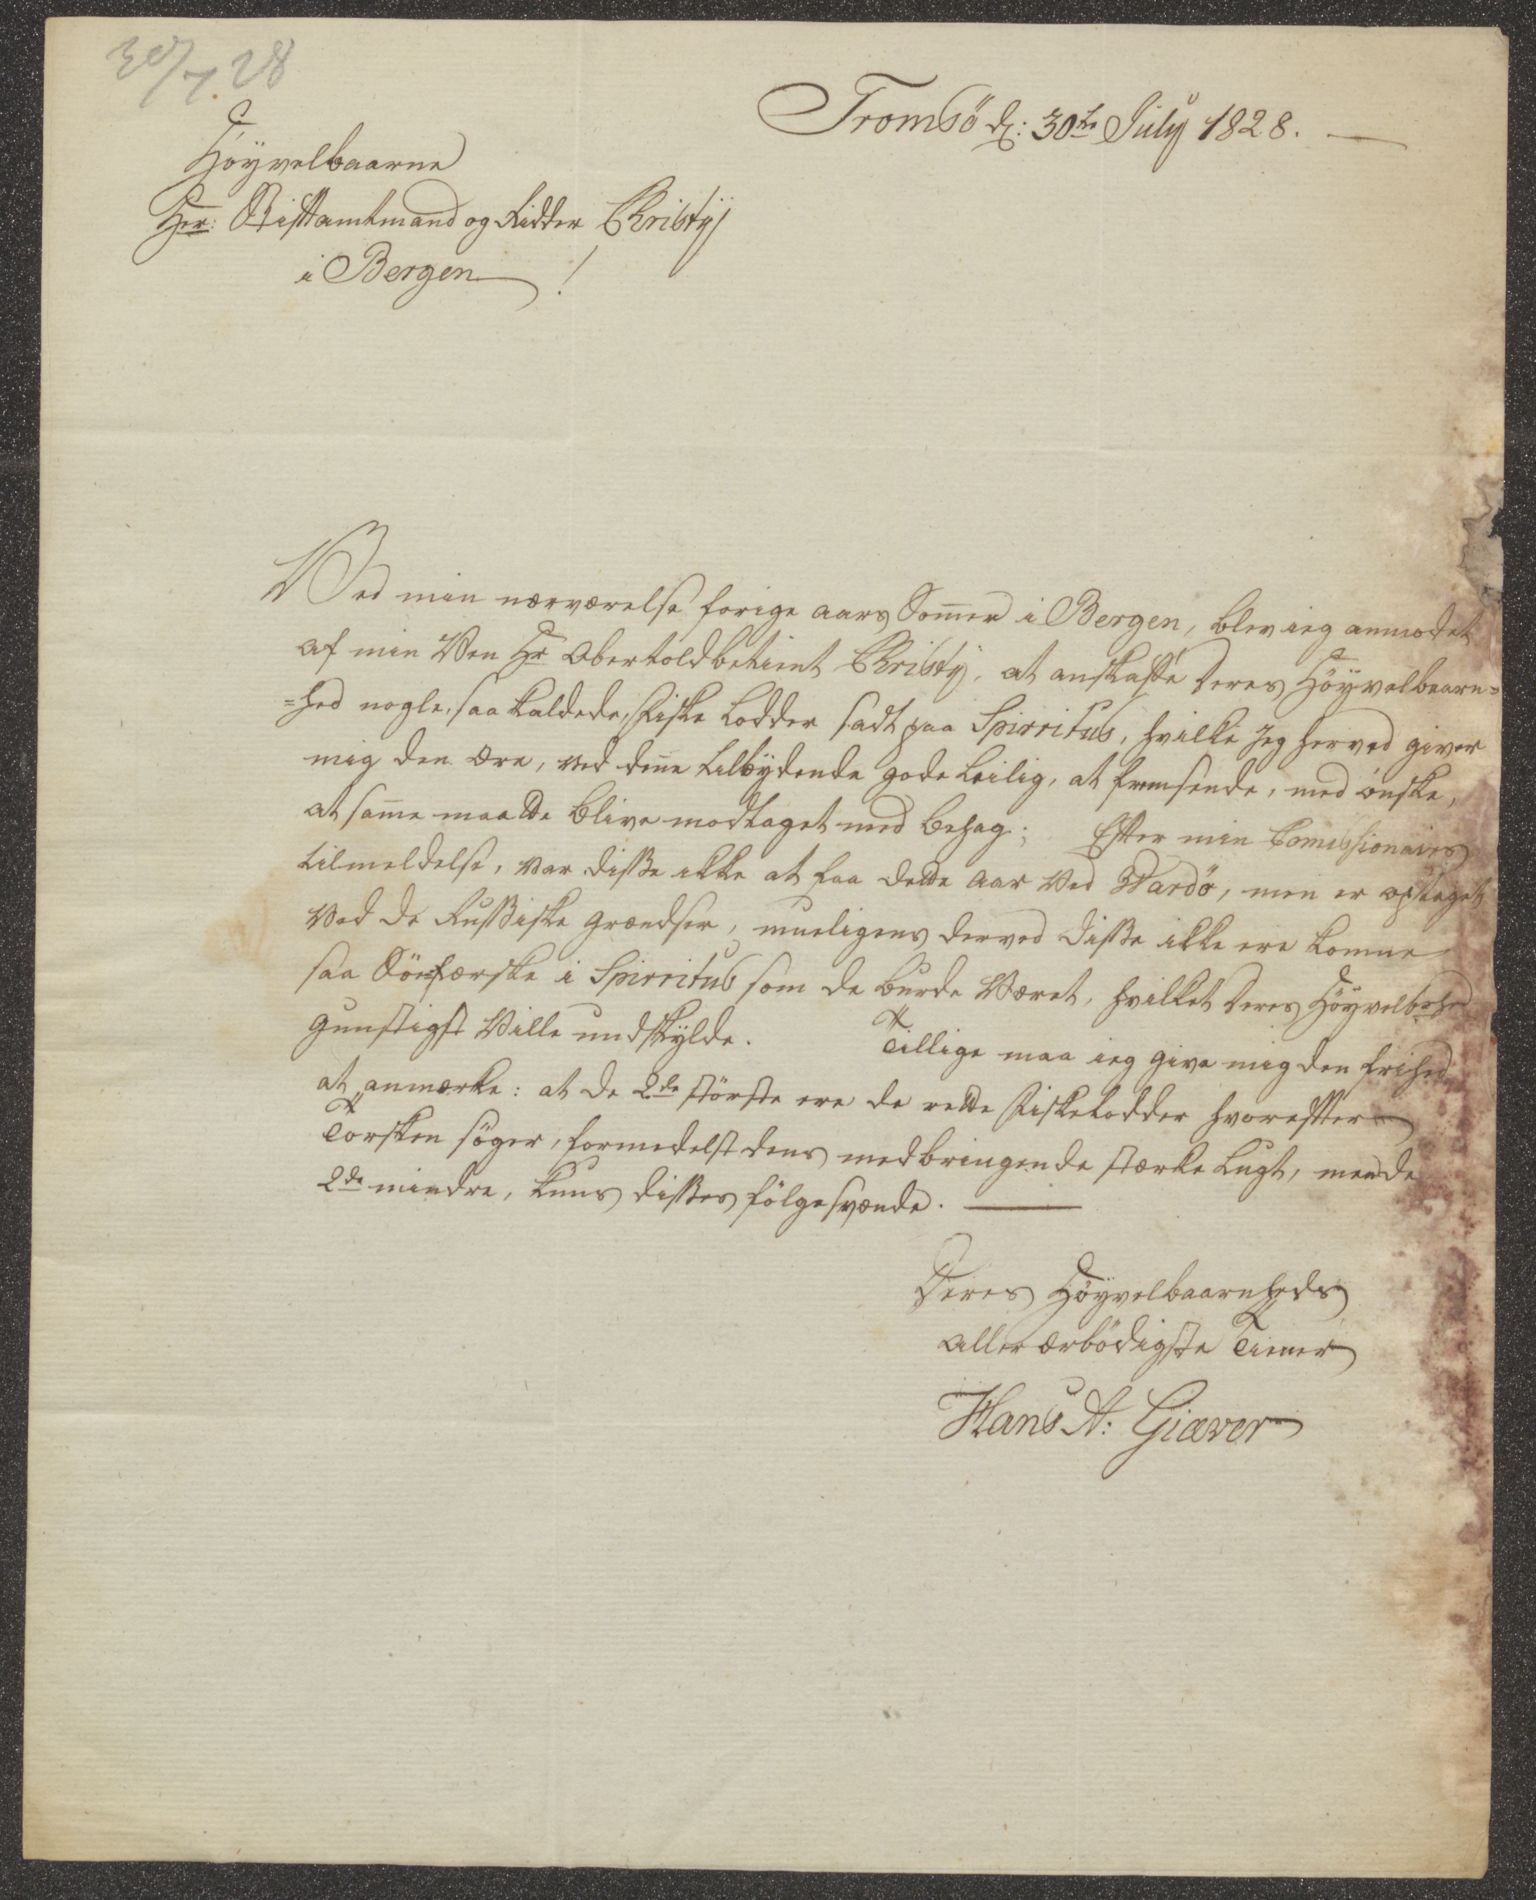 30/7.28
Tromsö d: 30te July 1828.
Höyvelbaarne
Her: Stiftamtmand og Ridder Christÿ
i Bergen !
Ved min nærværelse forige aars Som̅er i Bergen, blev ieg anmodet
af min Ven Hr Obertoldbetient Christÿ, at anskaffe Deres Höyvelbaarn=
=hed nogle, saa kaldede, Fiske Lodder sadt paa Spirritus, hvilke Jeg herved giver
mig den Ære, ved den̅e tilbÿdende gode Leilig, at fremsende, med ønske,
at sam̅e maatte blive modtaget med behag; Efter min Comissionairs
tilmeldelse, var disse ikke at faa dette Aar ved Wardö, men er optaget
ved de Russiske Grændser, mueligens derved disse ikke ere komne
saa Sönfærske i Spirritus som de burde været, hvilket Deres Höyvelbrhed
gunstigst Ville undskÿlde. Tillige maa ieg give mig den frihed
at anmærke: at de 2de störste ere de rette Fiske Lodder hvorefter
Torsken söger, formedelst dens medbringende stærke Lugt, men de
2de mindre, kuns disses fölgesvende.
Deres Höyvelbaarnheds
allerærbödigste Tiener
Hans A: Giæver